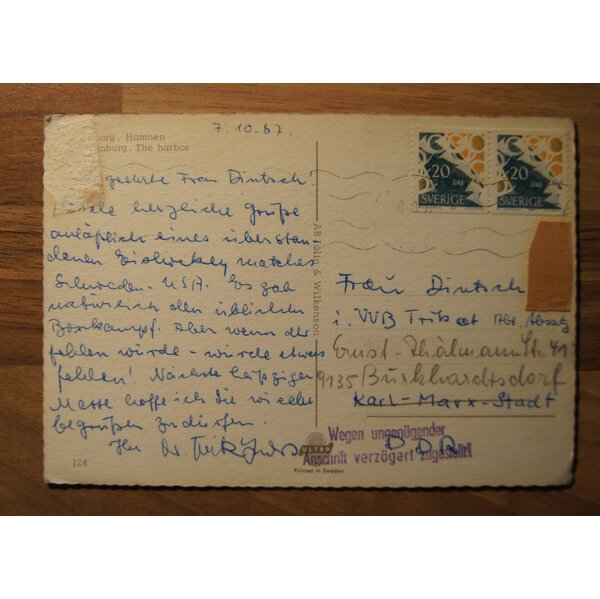 7.10.67.
org. Hamnen
nburg. The harbor
geehrte Frau Dintsch!
Viele herzliche Grüße
anläßlich eines überstan-
denen Eishockey matches
Schweden. USA. Es gab
natürlich den üblichen
Boxkampf. Aber wenn der
fehlen würde - würde etwas
fehlen! Nächste Leipziger
Messe hoffe ich Sie wieder
begrüßen zu dürfen.
Ihr Dr
124
AB & Wilkenson
ULTRA
Printed in Sweden
20 ÖRE
SVERIGE
20 ÖRE
SVERIGE
Frau Dintsch
i. VVB Trikot Abt. Absatz
Ernst-Thälmann Str. 41
9135 Burkhardtsdorf
Karl-Marx-Stadt
DDR
Wegen ungenügender
Anschrift verzögert zugestellt